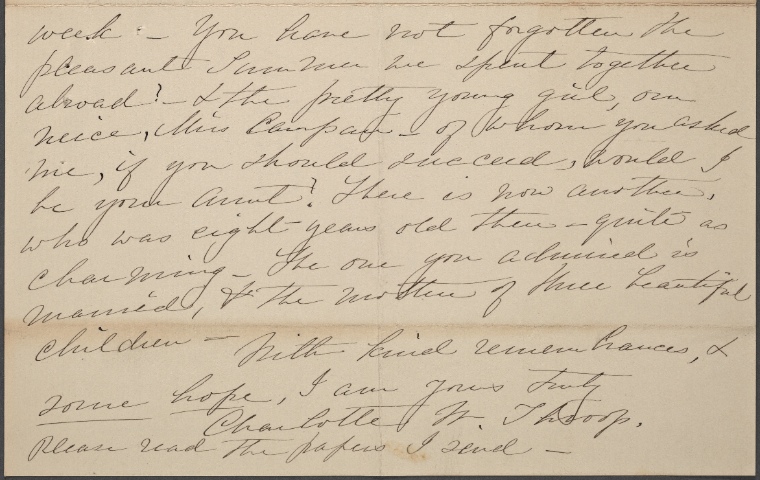 week – You have not forgotten the
pleasant Summer we spent together
abroad? – & the pretty young girl, our
neice, Miss – of whom you asked
me, if you should succeed, would I
be your Aunt? There is now another,
who was eight years old then – quite as
charming – The one you admired is
married, & the mother of three beautiful
children – With kind remembrances, &
some hope, I am yours truly
Charlotte W. Throop.
Please read the papers I send –